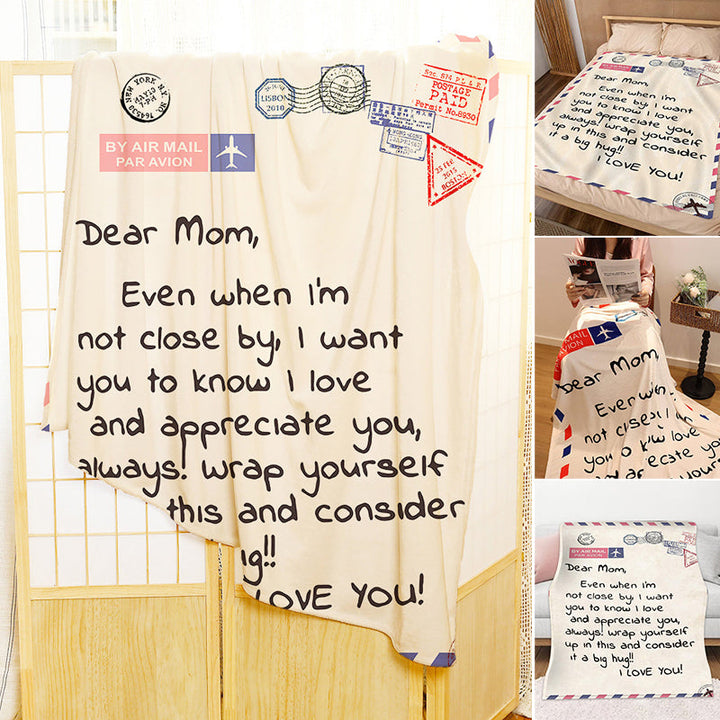 NEW YORK, N.Y.
MAY 19
PM
LISBON
2010
POSTAGE
PAID
Permit No.8930
HONG KONG
23 FEB
2015
BOSTON
BY AIR MAIL
PAR AVION
Dear Mom,
Even when i'm
not close by, I want
you to know I love
and appreciate you,
always! wrap yourself
this and consider
ig!!
LOVE YOU!
Dear Mom,
Even when i'm
not close by, I want
you to know I love
and appreciate you,
always! wrap yourself
up in this and consider
it a big hug!!
I LOVE YOU!
AIR MAIL
AVION
Dear Mom,
Even wh
not close
you to know love
ecate you,
your
BY AIR MAIL
PAR AVION
Dear Mom,
Even when i'm
not close by, I want
you to know I love
and appreciate you,
always! wrap yourself
up in this and consider
it a big hug!!
I LOVE YOU!